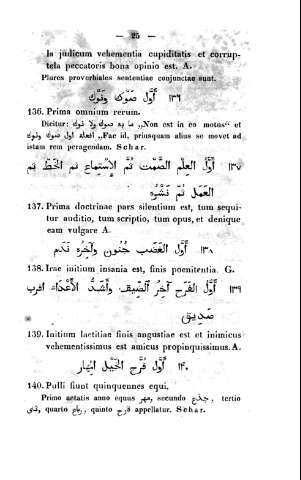 — 25 —
la judicum vehementia cupiditatis et corrup-
tela peccatoris bona opinio est. A.
Plures proverbiales sententiae conjunctae sunt.
١٣٦ أَوَّل صَوْك وَبَوْك
136. Prima omnium rerum.
Dicitur: ما به صوك ولا بوك „Non est in eo motus“ et
افعله اول صوك وبوك „Fac id, priusquam alius se movet ad
istam rem peragendam. Schar.
١٣٧ أَوَّلُ الْعِلْمِ الصَّمْتُ ثُمَّ الْإِسْتِمَاعُ ثم الْخَطّ ثم
الْعَمَلُ ثُمَّ نَشْرُهُ
137. Prima doctrinae pars silentium est, tum sequi-
tur auditio, tum scriptio, tum opus, et denique
eam vulgare A.
١٣٨ أَوَّلُ الْغَضَبِ جُنُون وَآخِرُهُ نَدَم
138. Irae initium insania est, finis poenitentia. G.
١٣٩ أَوَّلُ الْفَرَحِ آخِرُ الضِّيقِ وَأَشَدُّ الْأَعْدَاء اقرب
صَدِيق
139. Initium laetitiae finis angustiae est et inimicus
vehementissimus est amicus propinquissimus. A.
١٤٠ أَوَّل قُرَّحِ الْخَيْلِ
140. Pulli fiunt quinquennes equi.
Primo aetatis anno equus مهر, secundo جذع, tertio
ثنى, quarto رباع, quinto قارح appellatur. Schar.